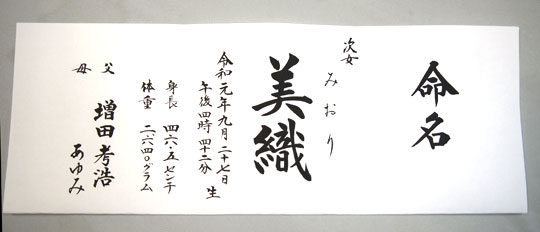 命名
次女
みおり
美織
令和元年九月二十七日
午後四時四十二分 生
身長 四六・五センチ
体重 二、六四〇グラム
父 増田考浩
母 あゆみ